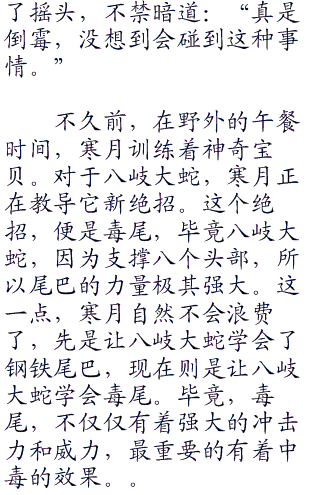 了摇头，不禁暗道：“真是
倒霉，没想到会碰到这种事
情。”
不久前，在野外的午餐
时间，寒月训练着神奇宝
贝。对于八岐大蛇，寒月正
在教导它新绝招。这个绝
招，便是毒尾，毕竟八岐大
蛇，因为支撑八个头部，所
以尾巴的力量极其强大。这
一点，寒月自然不会浪费
了，先是让八岐大蛇学会了
钢铁尾巴，现在则是让八岐
大蛇学会毒尾。毕竟，毒
尾，不仅仅有着强大的冲击
力和威力，最重要的有着中
毒的效果。。